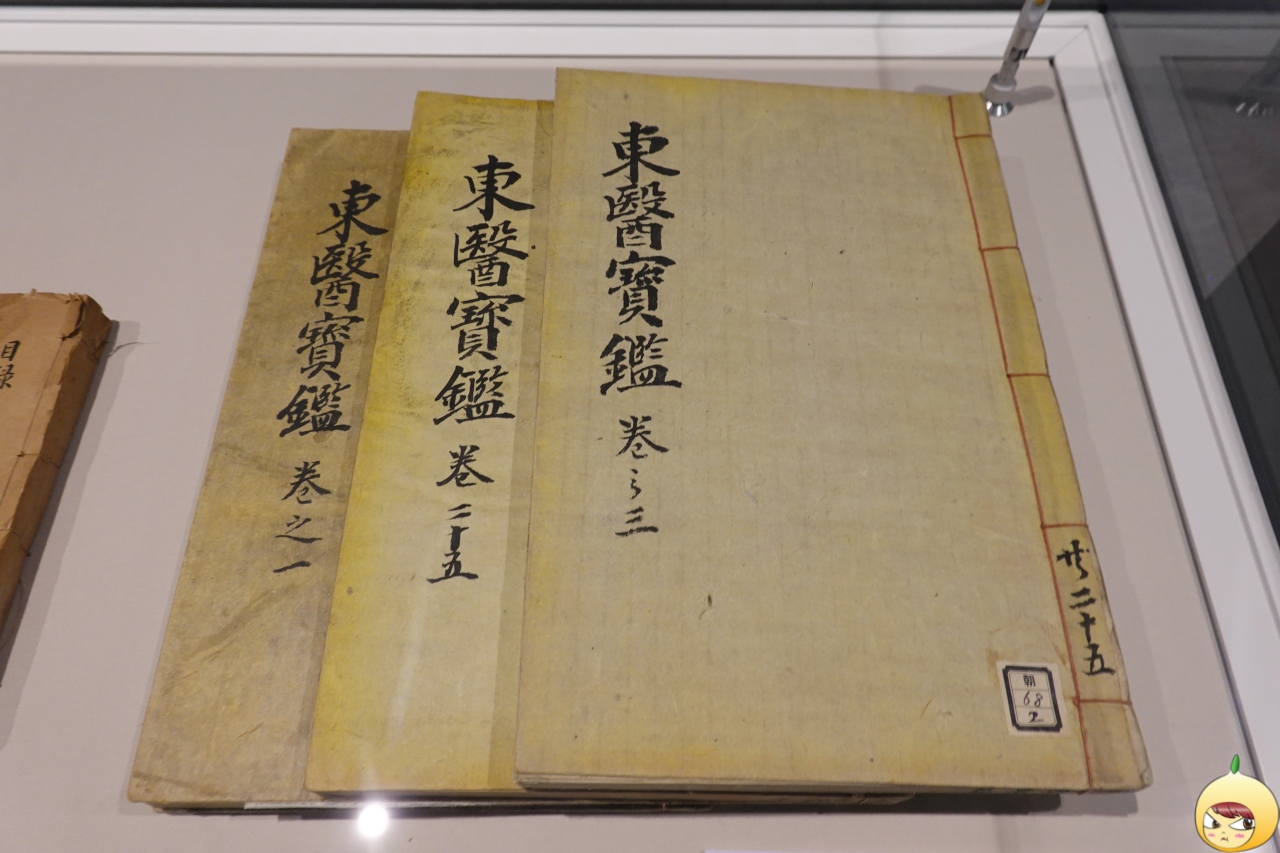 東醫寶鑑 卷之三
共二十五
朝
68
2
東醫寶鑑 卷二十五
東醫寶鑑 卷之一
目録